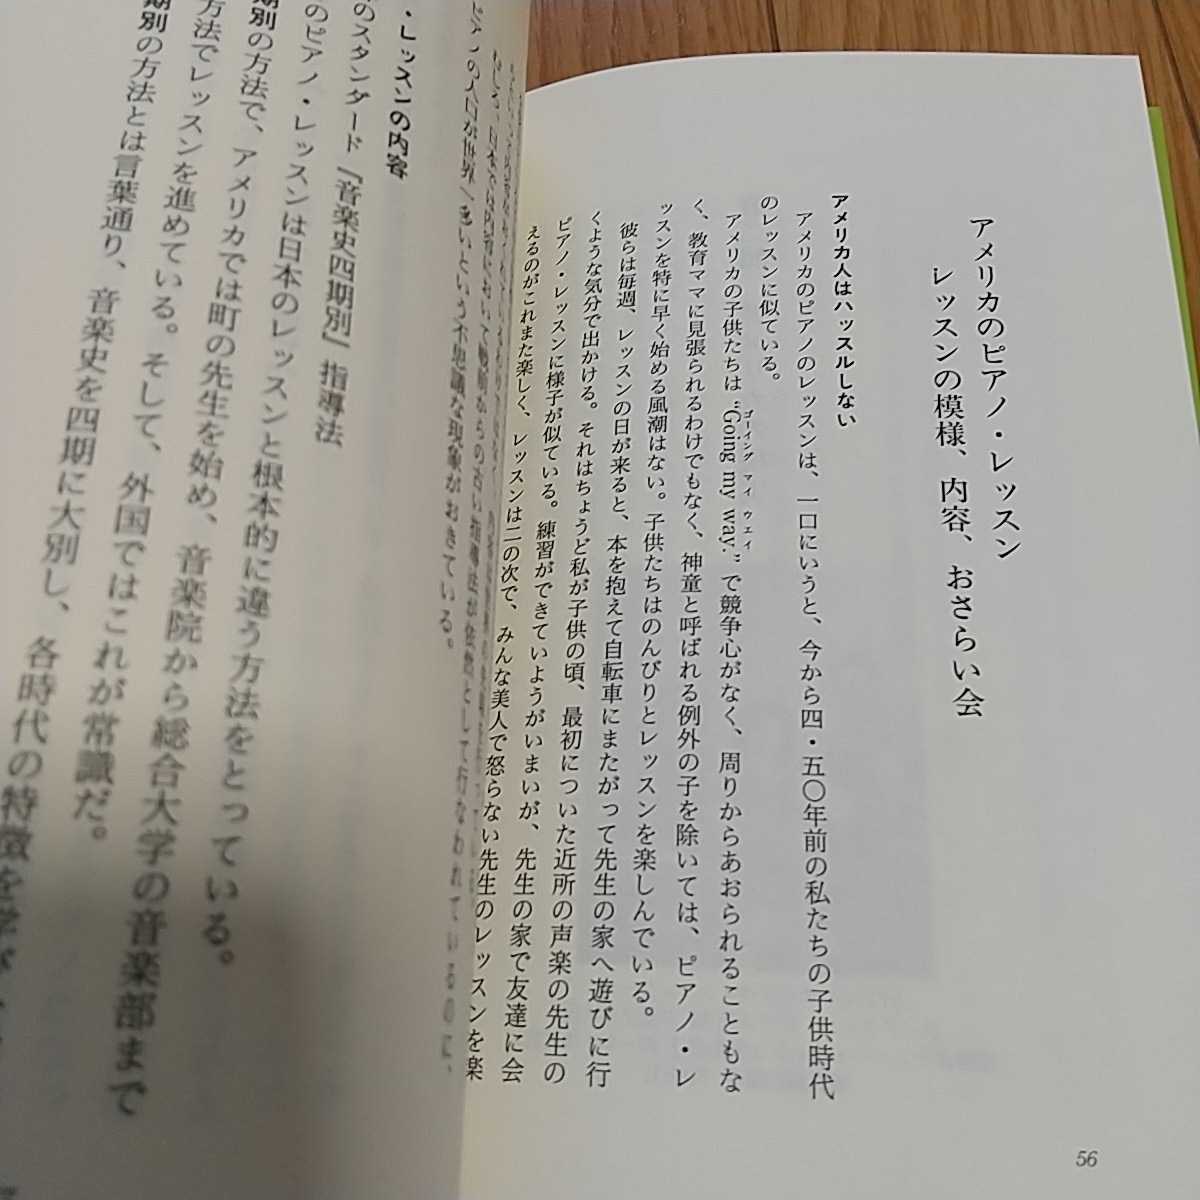 アメリカのピアノ・レッスン
レッスンの模様、内容、おさらい会
アメリカ人はハッスルしない
アメリカのピアノのレッスンは、一口にいうと、今から四・五〇年前の私たちの子供時代
のレッスンに似ている。
アメリカの子供たちは "Going my way." で競争心がなく、周りからあおられることもな
ゴーイング マイ ウェイ
く、教育ママに見張られるわけでもなく、神童と呼ばれる例外の子を除いては、ピアノ・レ
ッスンを特に早く始める風潮はない。子供たちはのんびりとレッスンを楽しんでいる。
彼らは毎週、レッスンの日が来ると、本を抱えて自転車にまたがって先生の家へ遊びに行
くような気分で出かける。それはちょうど私が子供の頃、最初についた近所の声楽の先生の
ピアノ・レッスンに様子が似ている。練習ができていようがいまいが、先生の家で友達に会
えるのがこれまた楽しく、レッスンは二の次で、みんな美人で怒らない先生のレッスンを楽
56
ピアノの人口が世界一多いという不思議な現象がおきている。
・レッスンの内容
のスタンダード『音楽史四期別』指導法
のピアノ・レッスンは日本のレッスンと根本的に違う方法をとっている。
期別の方法で、アメリカでは町の先生を始め、音楽院から総合大学の音楽部まで
方法でレッスンを進めている。そして、外国ではこれが常識だ。
期別の方法とは言葉通り、音楽史を四期に大別し、各時代の特徴を学び